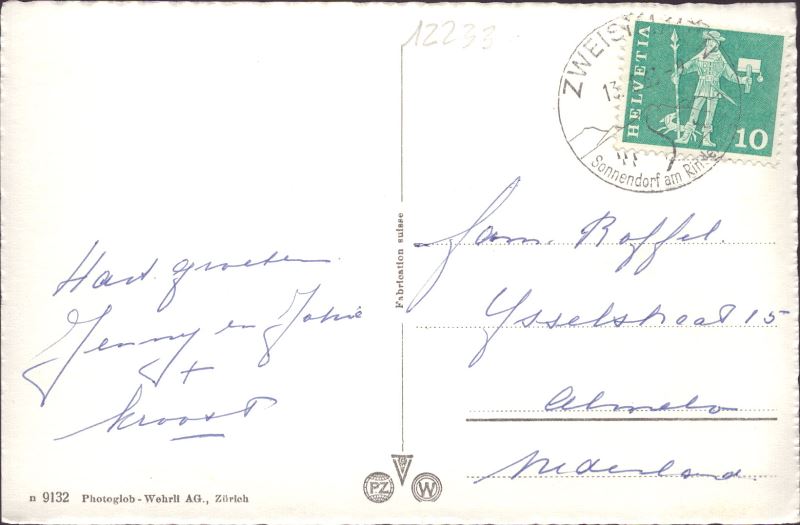 12233
ZWEISIMMEN
13.
HELVETIA
10
Sonnendorf am Rinderberg
Hart. groeten
Jenny en Johnie
+
kroost
Fabrication suisse
Fam. Roffel.
Ysselstraat 15
Almelo
Nederland.
n 9132 Photoglob-Wehrli AG., Zürich
PZ
W